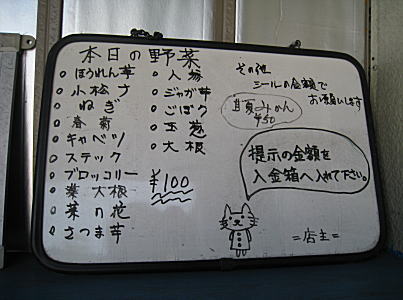 本日の野菜
ほうれん草
小松ナ
ねぎ
春菊
キャベツ
ステック
ブロッコリー
葉大根
菜の花
さつま芋
人参
ジャガ芋
ごぼう
玉葱
大根
¥100
その他
シールの金額で
お願いします
甘夏みかん
¥50
提示の金額を
入金箱へ入れて下さい。
=店主=